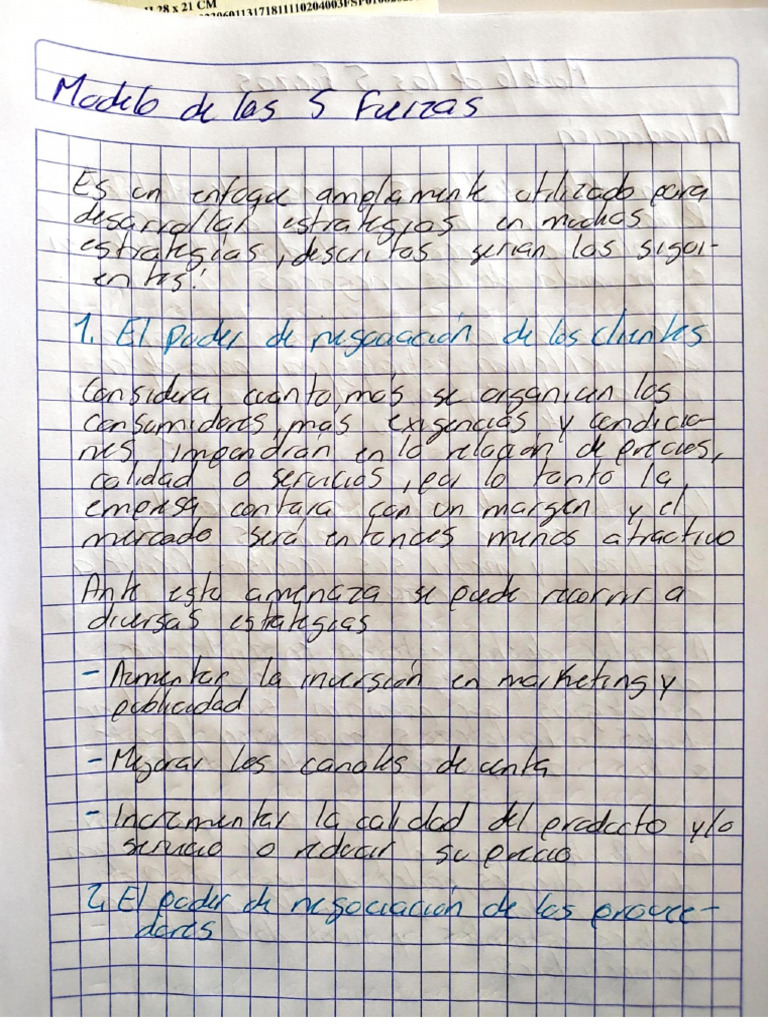 28 x 21 CM
Modelo de las 5 Fuerzas
Es un enfoque ampliamente utilizado para
desarrollar estrategias en muchas
estrategias, descritas serian las sigui-
entes:
1. El poder de negociación de los clientes
Considera cuanto más se organizan los
consumidores, más exigencias y condicio-
nes impondrán en la relación de precios,
calidad o servicios, por lo tanto la
empresa contara con un margen y el
mercado será entonces menos atractivo
Ante esta amenaza se puede recorrir a
diversas estrategias
- Aumentar la inversión en marketing y
publicidad
- Mejorar los canales de venta
- Incrementar la calidad del producto y/o
servicio o reducir su precio
2. El poder de negociación de los provee-
dores